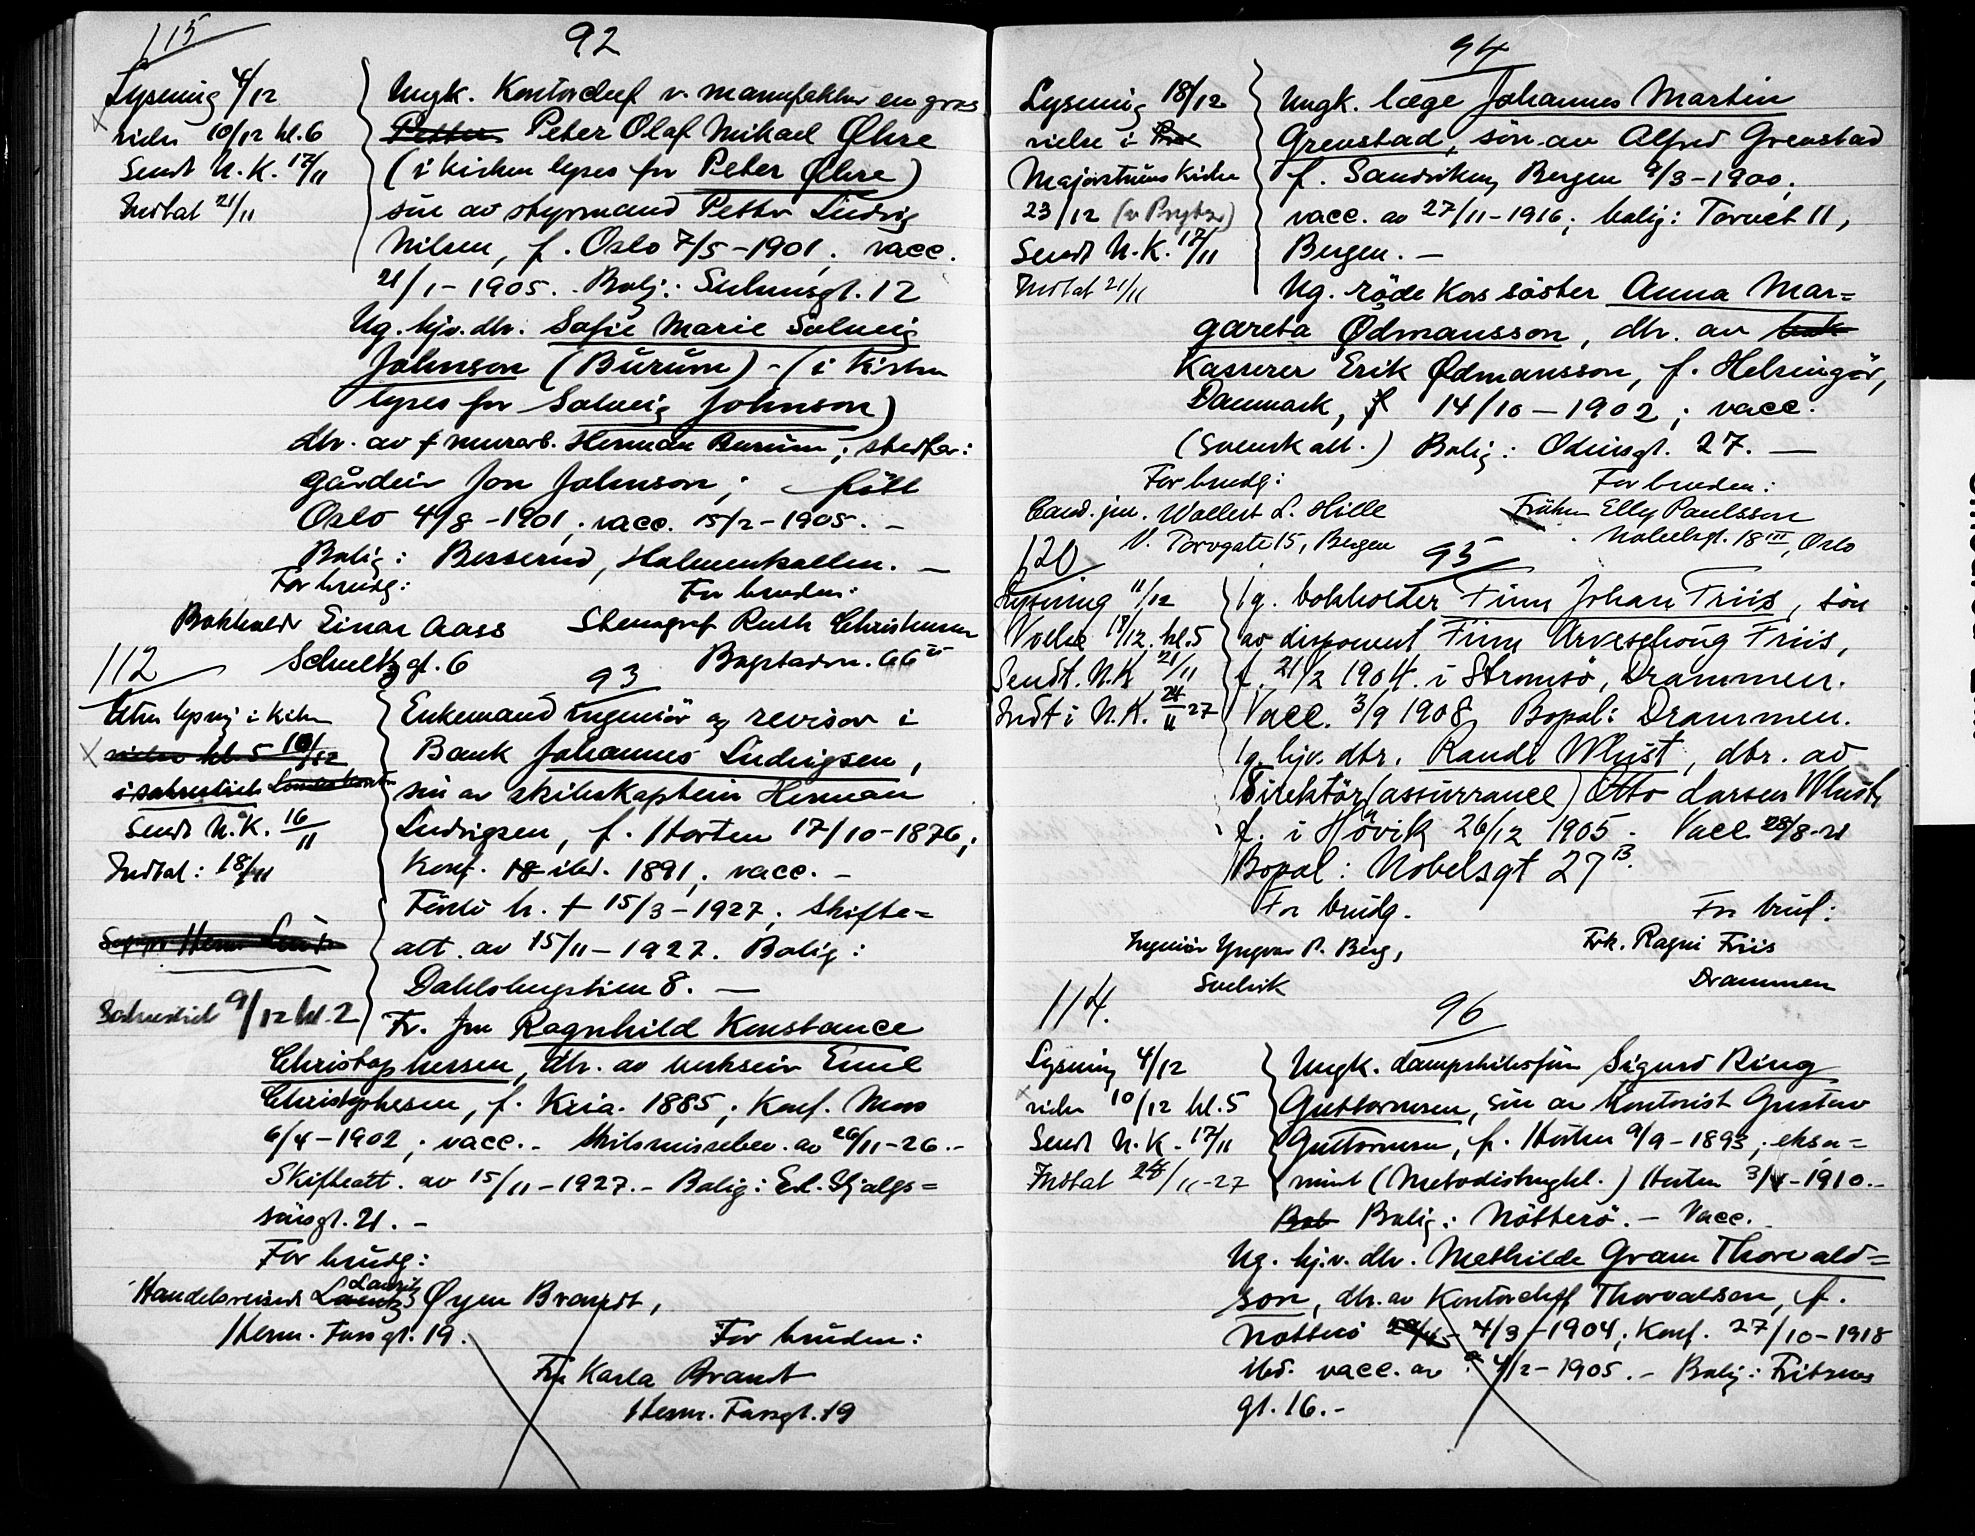 115
92
Lysning 4/12
vielse 10/12 kl. 6
Sendt N.K. 17/11
Indtat 21/11
Ungk. Kontorchef v. manufaktur en gros
Petter Peter Olaf Mikael Øhre
(i kirken lyses for Peter Øhre)
sön av styrmand Petter Ludvig
Nilsen, f. Oslo 7/5-1901, vacc.
21/1-1905. Bolig: Suhmsgt. 12
Ug. hjv. dtr. Sofie Marie Solveig
Johnson (Burum) - (i kirken
lyses for Solveig Johnson)
dtr. av † murarb. Herman Burum; stedfar:
gårdeier Jon Johnson; född
Oslo 4/8-1901, vacc. 15/2-1905. -
Bolig: Besserud, Holmenkollen. -
For brudg:
For bruden:
Bokholder Einar Aass
Schultzgt. 6
Stenograf Ruth Christensen
Bogstadvn. 66
112
93
Uten lysning i kirken
vielse kl. 5 10/12
i sakristiet
Sendt N.K. 16/11
Indtat: 18/11
Sakristiet 9/12 kl. 2
Enkemand ingeniör og revisor i
Bank Johannes Ludvigsen,
sön av skibskaptein Herman
Ludvigsen, f. Horten 17/10-1876;
Konf. 18 ibd. 1891, vacc. -
Förste h. † 15/3-1927, skifte=
att. av 15/11-1927. Bolig:
Dahlsbergstien 8. -
Fr. fru Ragnhild Konstance
Christophersen, dtr. av verkseier Emil
Christophersen, f. Kria. 1885; Konf. Moss
6/4-1902; vacc. - Skilsmissebev. av 26/11-26. -
Skifteatt. av 15/11-1927. - Bolig: Erl. Skjalgs=
sönsgt. 21. -
For brudg:
Handelsreisende Lorentz Lauritz Øyen Brandt,
Herm. Fossgt. 19.
For bruden:
Fru Karla Brandt
Herm. Fossgt. 19
94
Lysning 18/12
vielse i
Majorstuens Kirke
23/12 (v Prytz)
Sendt N.K. 17/11
Indtat 21/11
Ungk. læge Johannes Martin
Grenstad, sön av Alfred Grenstad
f. Sandviken, Bergen 9/3-1900,
vacc. av 27/11-1916; bolig: Torvet 11,
Bergen. -
Ug. röde Kors söster Anna Mar=
gareta Ødmansson, dtr. av
Kasserer Erik Ødmansson, f. Helsingör,
Danmark, f 14/10-1902; vacc.
(svensk att.) Bolig: Odinsgt. 27. -
For brudg:
For bruden:
Cand. jur. Wollert L. Hille
V. Torvgate 15, Bergen
Fröken Elly Paulsson
Nobelsgt. 18 III, Oslo
120
95
Lysning 11/12
Vielse 17/12 kl. 5
Sendt. N.K. 21/11
Indt i N.K. 24/11 27
Ug. bokholder Finn Johan Friis, sön
av disponent Finn Urveschoug Friis,
f. 21/2 1904 i Strömsö, Drammen.
Vacc. 3/9 1908, Bopæl: Drammen.
Ug. hjv. dtr. Randi Whist, dtr. av
Direktör (assurrance) Otto Larsen Whist,
f. i Hövik 26/12 1905. Vacc. 28/8-21
Bopæl: Nobelsgt 27 B.
For brudg.
For brud:
Ingeniör Yngvar P. Berg,
Svelvik
Frk. Ragni Friis
Drammen
114.
96
Lysning 4/12
vielse 10/12 kl. 5
Sendt N.K. 17/11
Indtat 24/11-27
Ungk. dampskibsförer Sigurd Ring
Guttormsen, sön av Kontorist Gustav
Guttormsen, f. Horten 9/9-1893, eksa=
mint (Metodistmgh.) Horten 3/4-1910. -
Bob Bolig: Nötterö. - Vacc.
Ug. hjv. dtr. Mathilde Gram Thorvald=
son, dtr. av Kontorchef Thorvaldson, f.
Nötterö 4/3-1904; Konf. 27/10-1918
ibd. vacc. av 4/2-1905. - Bolig: Fritzners
gt. 16. -